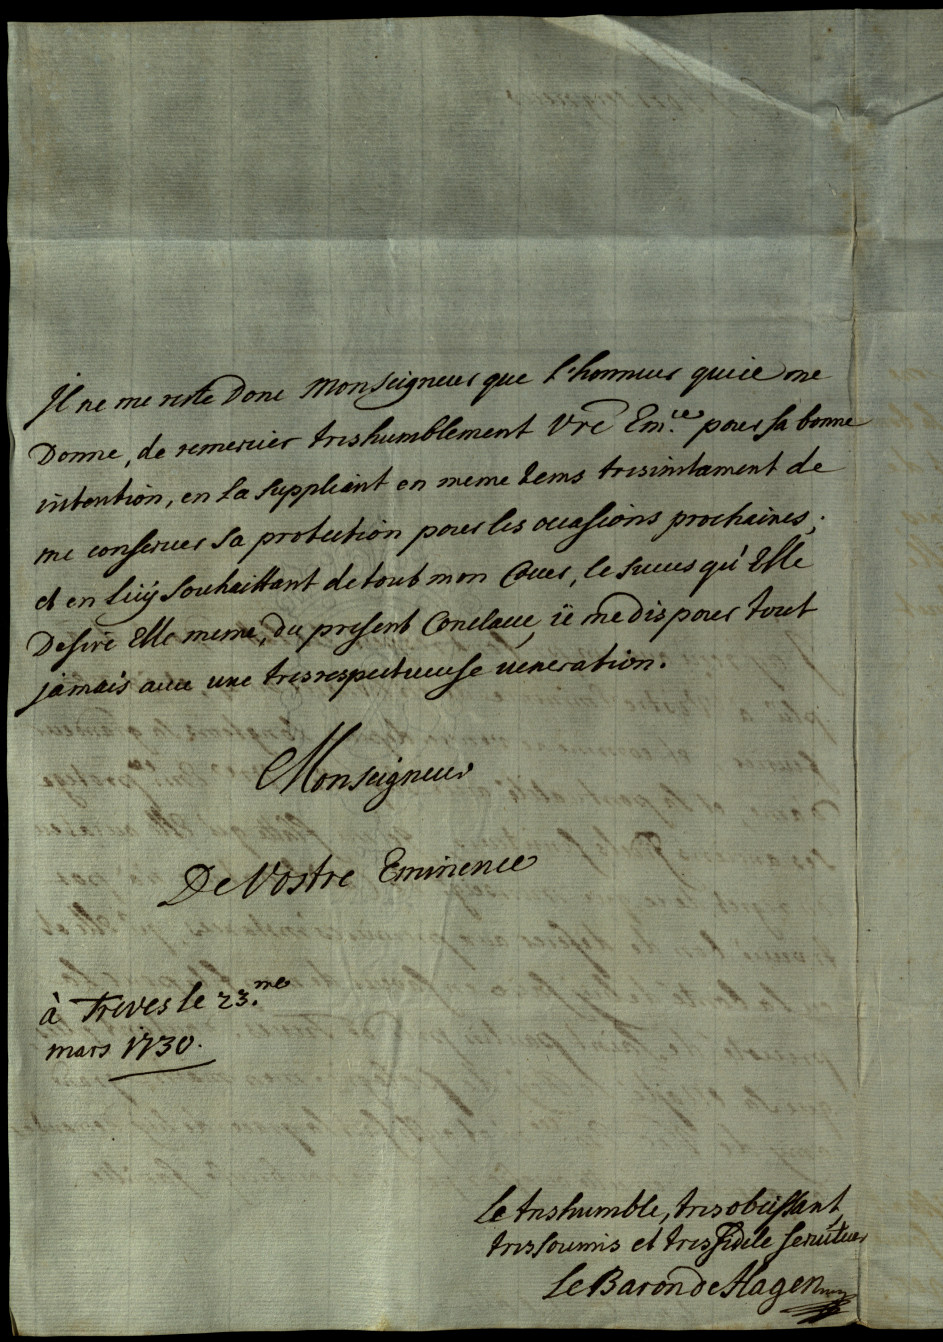 Il ne me reste Donc Monseigneur que l'honneur que ie me
Donne, de remercier treshumblement Vre Em.ce pour sa bonne
intention, en la suppliant en meme tems tresinstament de
me conseruer sa protection pour les occasions prochaines,
et en luÿ souhaittant de tout mon Coeur, le succes qu'Elle
Desire Elle meme, du present Conclaue, ie me dis pour tout
jamais auec une tresrespectueuse ueneration.
Monseigneur
De Vostre Eminence
à Treves le 23.me
mars 1730.
Le treshumble, tresobeissant
tressoumis et tresfidele seruiteur
Le Baron de Hagen